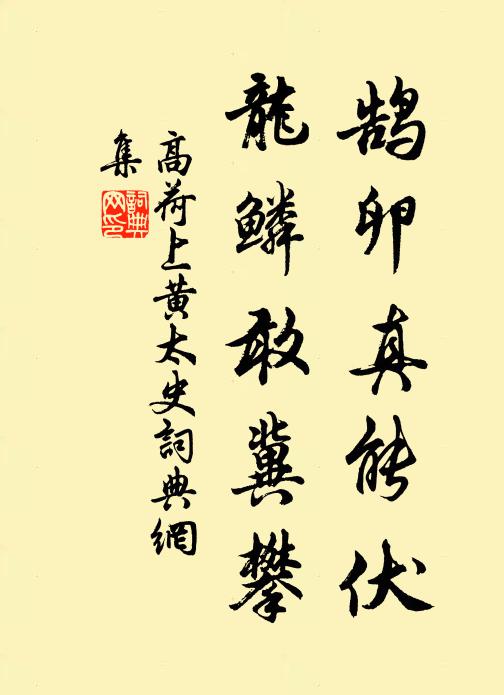 鵠卵真能伏
龍鱗敢冀攀
高荷上黃太史詞典網
集
詞典
网印